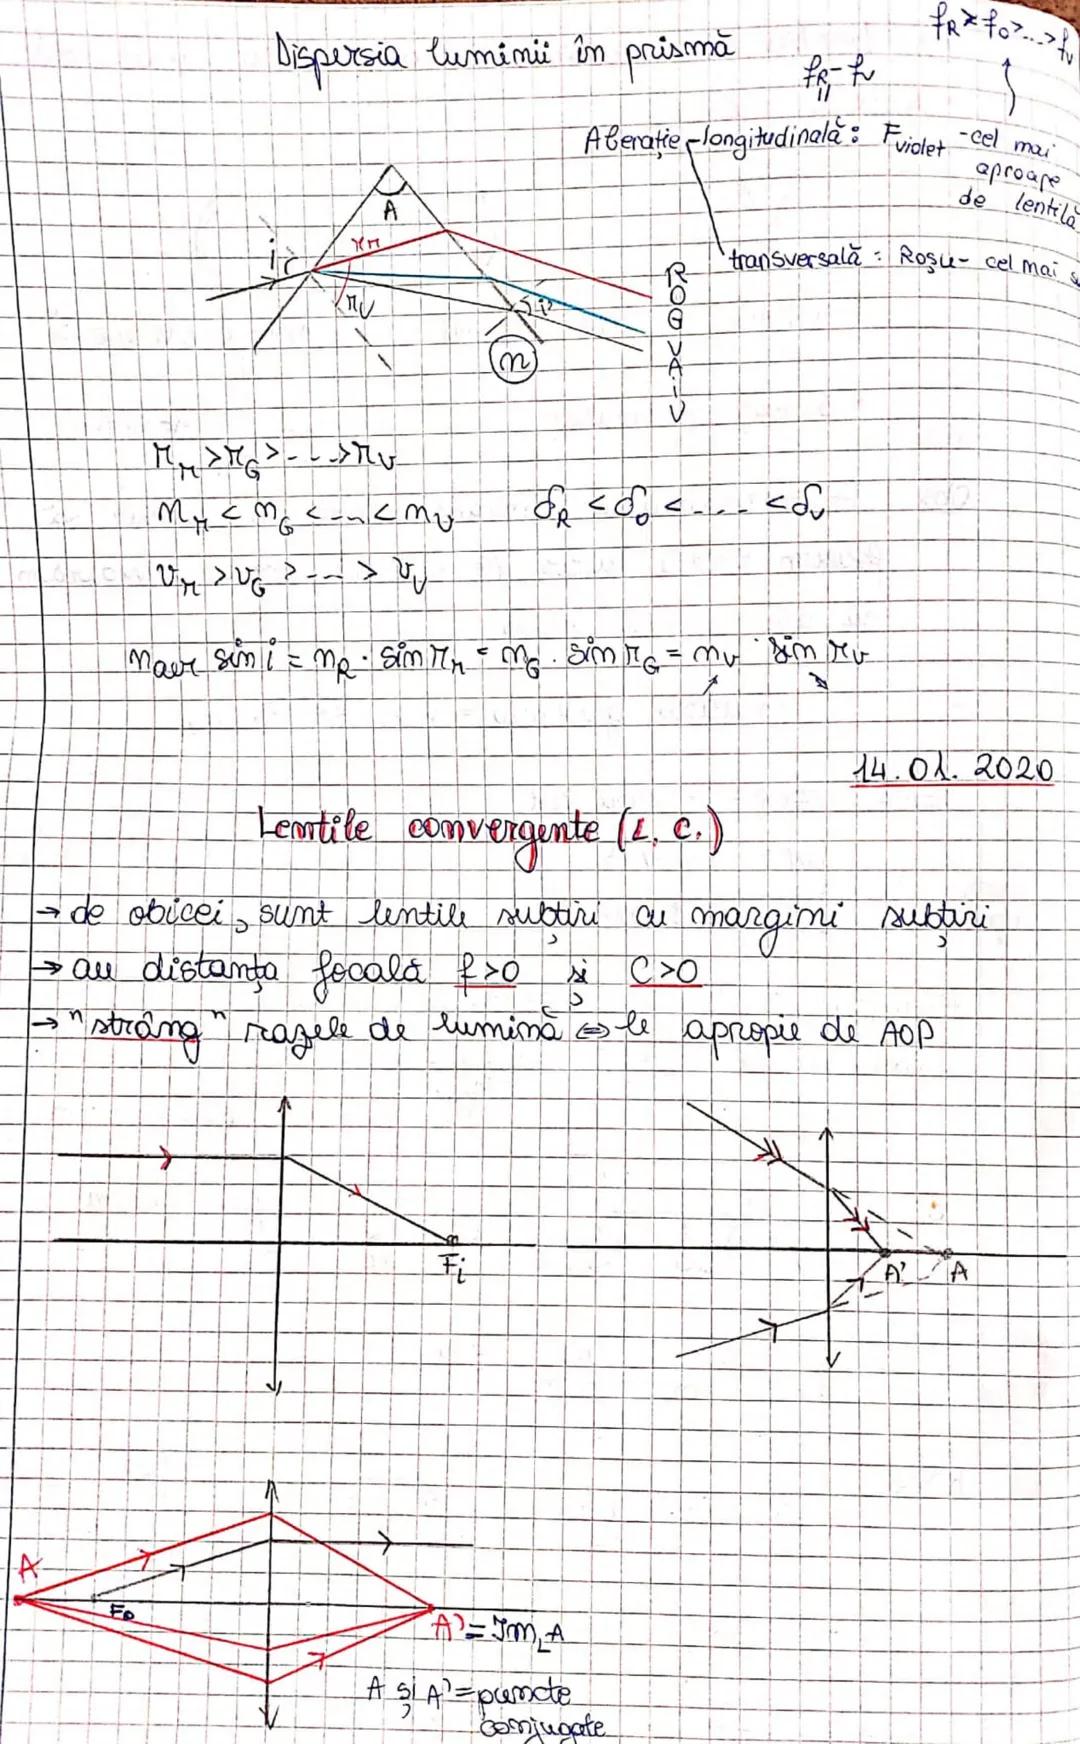 Dispersia luminii în prismă
f_R > f_O > ... > f_v
f_R - f_v
Aberație - longitudinală : F_violet - cel mai
aproape
de lentilă
transversală : Roșu - cel mai
A
i
r_r
r_v
i'
n
R
O
G
V
A
i
V
r_r > r_G > - - -> r_v
n_r < n_G < ... < n_v δ_R < δ_O < . . . < δ_v
v_r > v_G > - - - > v_v
n_aer sin i = n_R · sin r_r = n_G · sin r_G = n_v · sin r_v
14.01.2020
Lentile convergente (L. C.)
→ de obicei, sunt lentile subțiri cu margini subțiri
→ au distanța focală f>0 și C>0
→ "strâng" razele de lumină ⇔ le apropie de AOP
F_i
A' A
A
F_o
A' = Im_L A
A și A' = puncte
conjugate